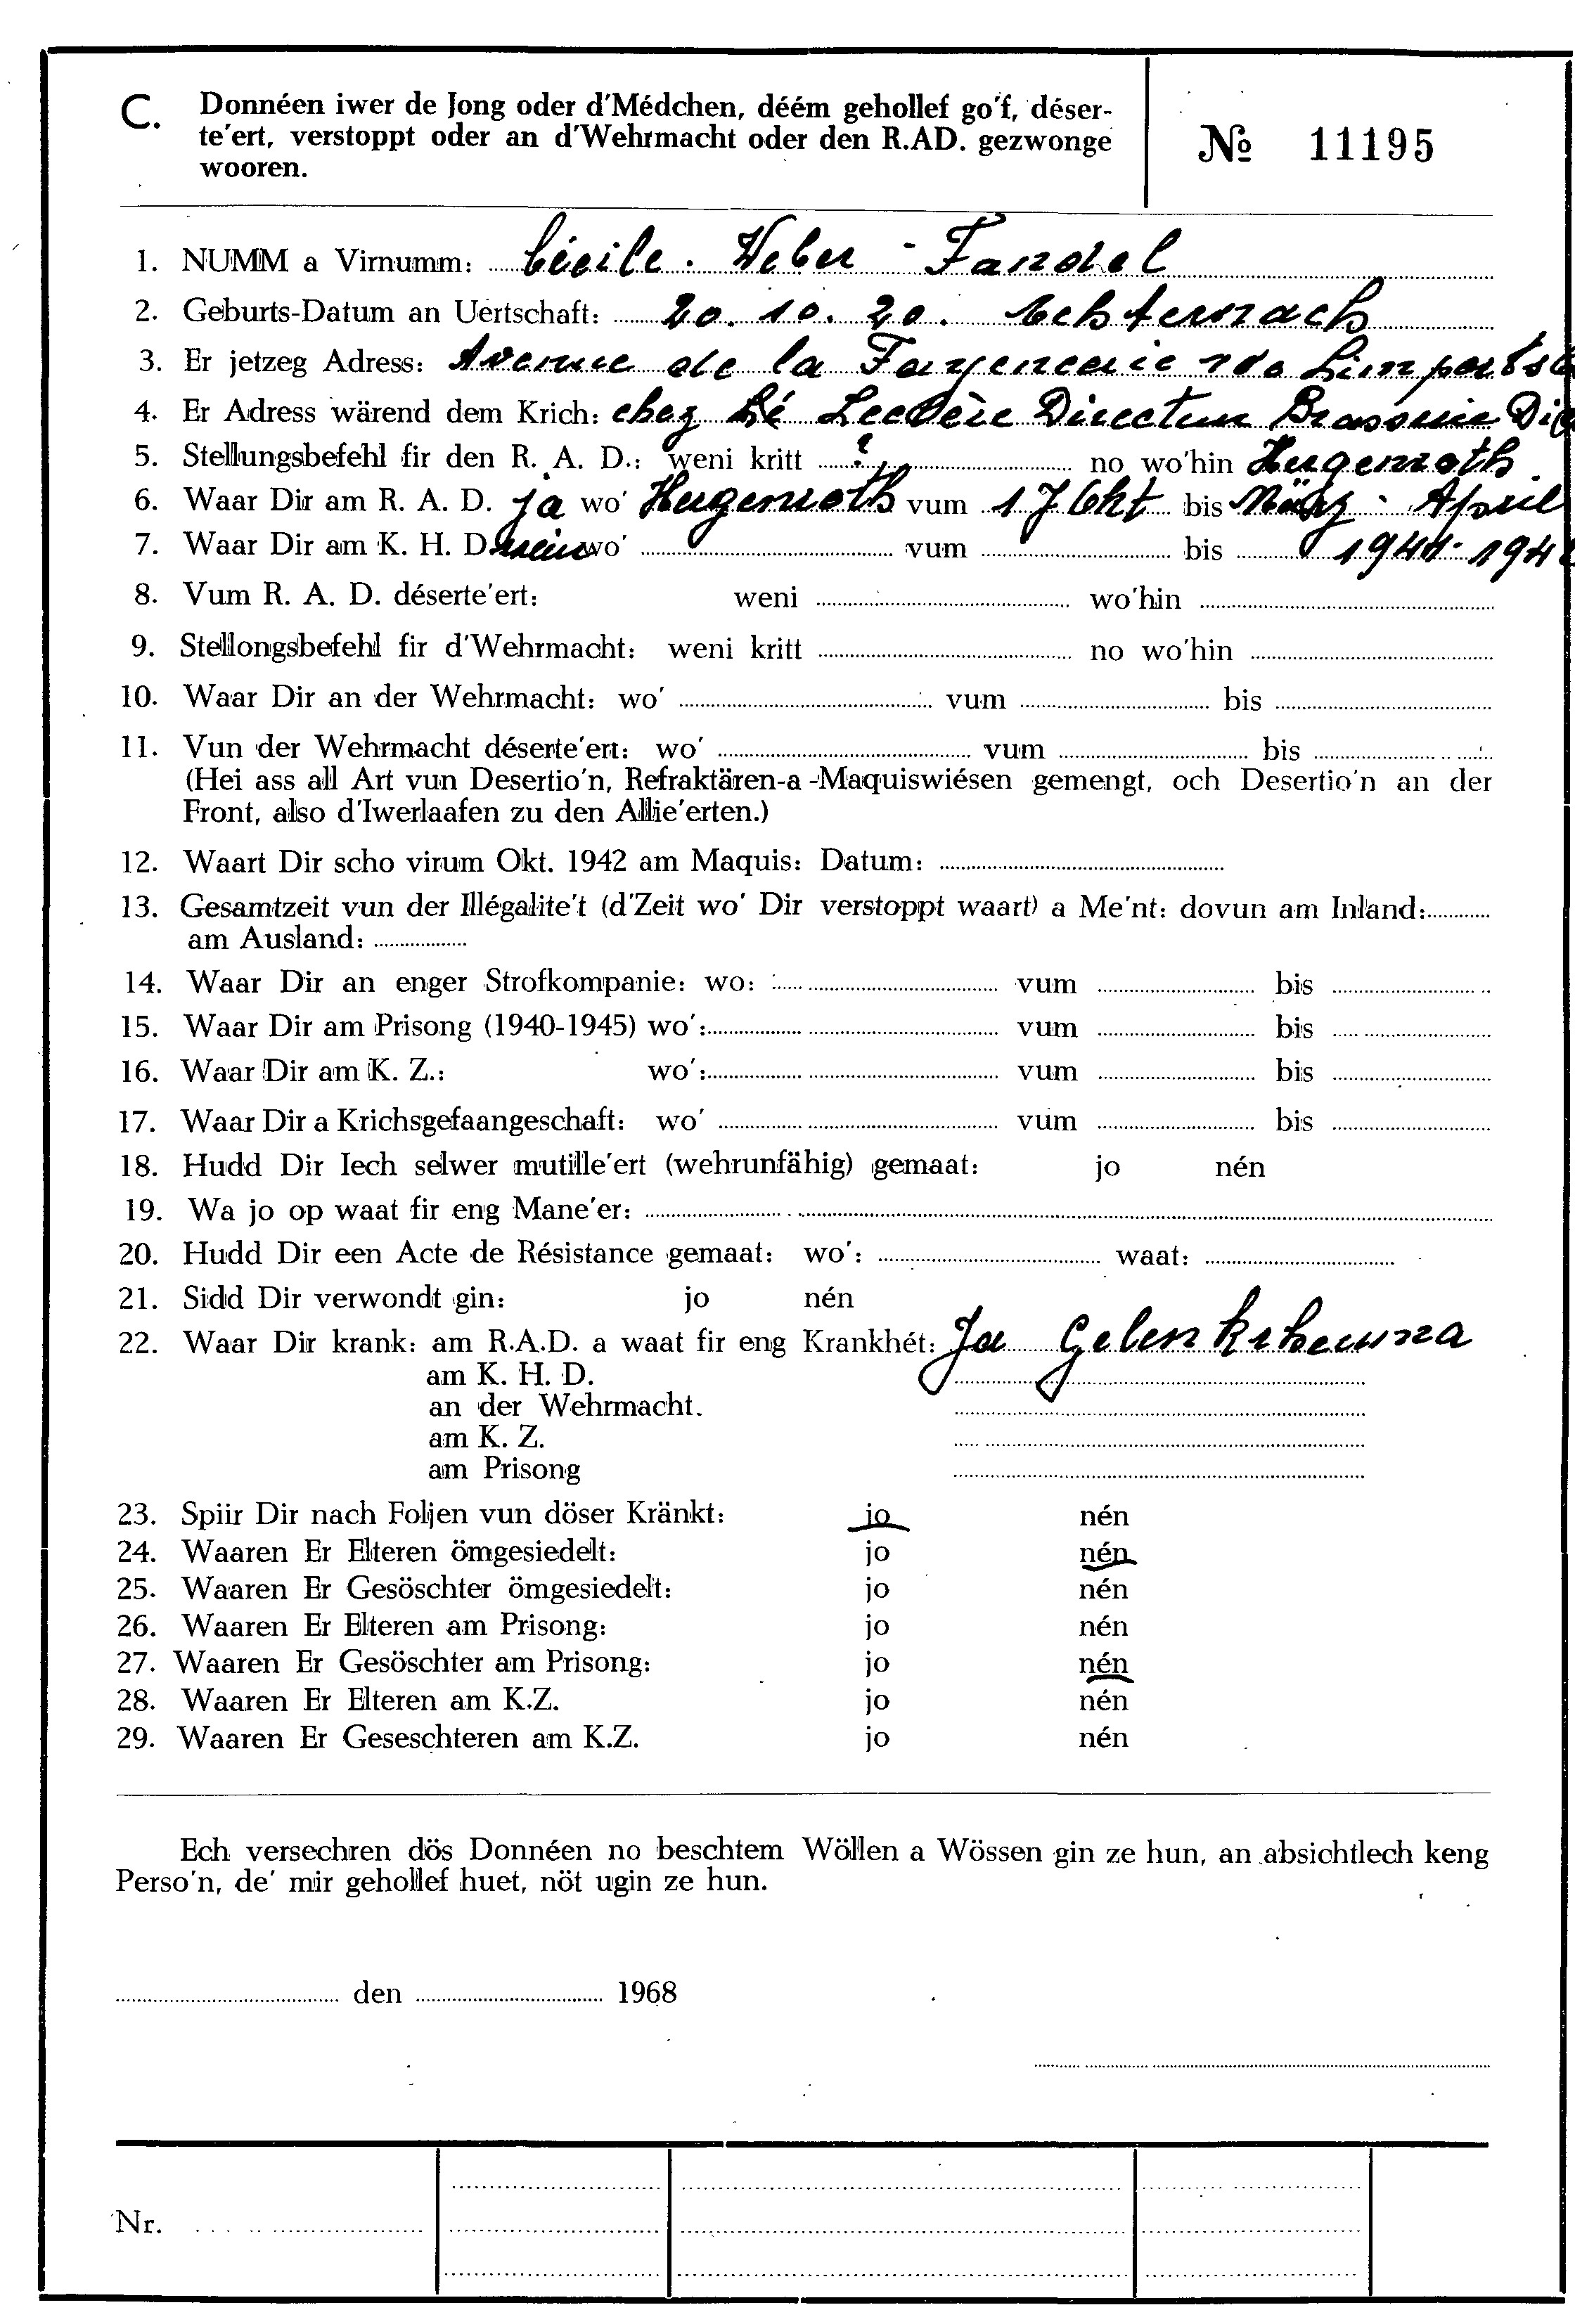 C. Donnéen iwer de Jong oder d'Médchen, déém gehollef go'f, déser-
te'ert, verstoppt oder an d'Wehrmacht oder den R.AD. gezwonge
wooren.
№ 11195
1. NUMM a Virnumm: Cécile. Weber - Fandel
2. Geburts-Datum an Uertschaft: 20. 10. 20. Echternach
3. Er jetzeg Adress: Avenue de la Fayencerie Limperts
4. Er Adress wärend dem Krich: chez Directeur Brasserie
5. Stellungsbefehl fir den R. A. D.: weni kritt ? no wo'hin Hugenroth
6. Waar Dir am R. A. D. ja wo' Hugenroth vum 17 Okt bis März - April
7. Waar Dir am K. H. D. nein wo' vum bis 1941-194
8. Vum R. A. D. déserte'ert: weni wo'hin
9. Stellongsbefehl fir d'Wehrmacht: weni kritt no wo'hin
10. Waar Dir an der Wehrmacht: wo' vum bis
11. Vun der Wehrmacht déserte'ert: wo' vum bis
(Hei ass all Art vun Desertio'n, Refraktären-a -Maquiswiésen gemengt, och Desertio'n an der
Front, also d'Iwerlaafen zu den Allie'erten.)
12. Waart Dir scho virum Okt. 1942 am Maquis: Datum:
13. Gesamtzeit vun der Illégalite't (d'Zeit wo' Dir verstoppt waart) a Me'nt: dovun am Inland:
am Ausland:
14. Waar Dir an enger Strofkompanie: wo: vum bis
15. Waar Dir am Prisong (1940-1945) wo': vum bis
16. Waar Dir am K. Z.: wo': vum bis
17. Waar Dir a Krichsgefaangeschaft: wo' vum bis
18. Hudd Dir Iech selwer mutille'ert (wehrunfähig) gemaat: jo nén
19. Wa jo op waat fir eng Mane'er:
20. Hudd Dir een Acte de Résistance gemaat: wo': waat:
21. Sidd Dir verwondt gin: jo nén
22. Waar Dir krank: am R.A.D. a waat fir eng Krankhét: Ja Gelenkrheuma
am K. H. D.
an der Wehrmacht.
am K. Z.
am Prisong
23. Spiir Dir nach Foljen vun döser Kränkt: jo nén
24. Waaren Er Elteren ömgesiedelt: jo nén
25. Waaren Er Gesöschter ömgesiedelt: jo nén
26. Waaren Er Elteren am Prisong: jo nén
27. Waaren Er Gesöschter am Prisong: jo nén
28. Waaren Er Elteren am K.Z. jo nén
29. Waaren Er Geseschteren am K.Z. jo nén
Ech versechren dös Donnéen no beschtem Wöllen a Wössen gin ze hun, an absichtlech keng
Perso'n, de' mir gehollef huet, nöt ugin ze hun.
den 1968
Nr.